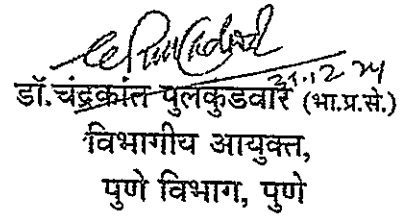 डॉ.चंद्रकांत पुलकुडवार (भा.प्र.से.)
विभागीय आयुक्त,
पुणे विभाग, पुणे